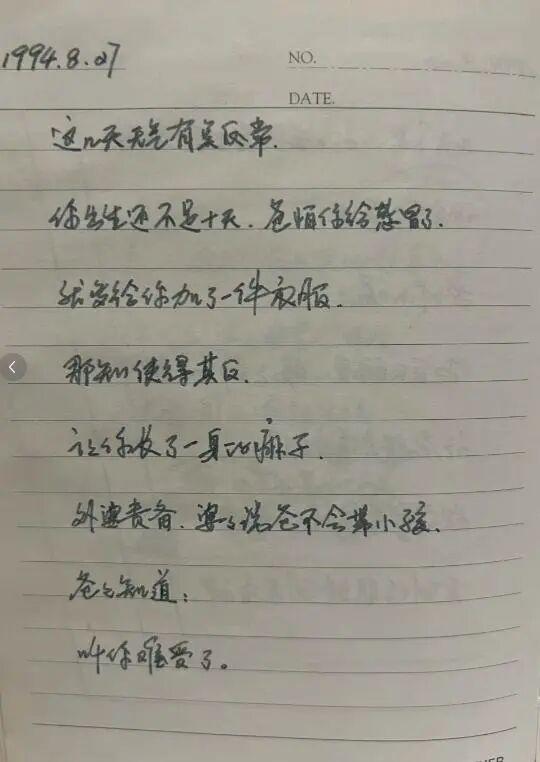 1994.8.27
NO.
DATE.
这几天天气有点反常.
你出生还不足十天.爸怕你给感冒了.
就多给你加了一件衣服.
那知使得其反.
让你长了一身的痱子.
外婆责备.婆婆说爸不会带小孩.
爸也知道:
叫你难受了。